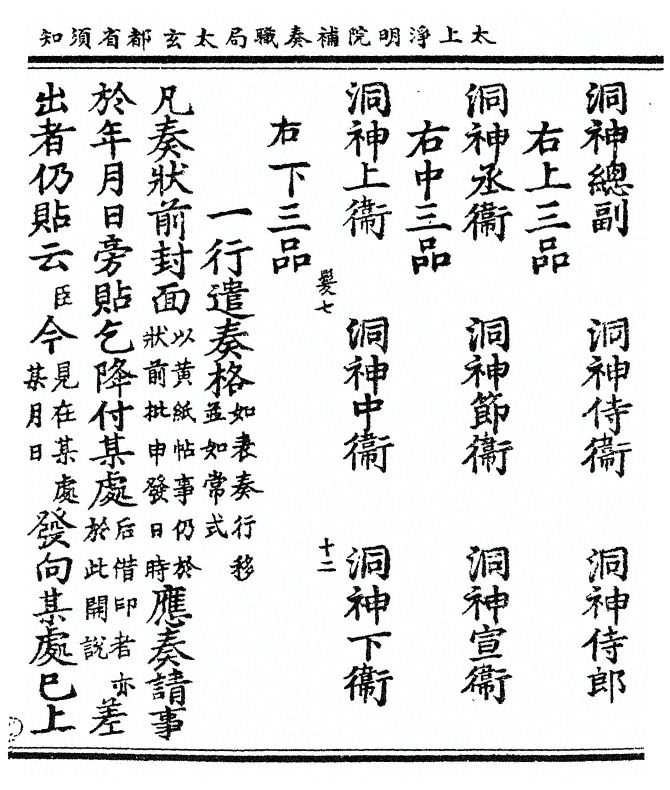 太上淨明院補奏職局太玄都省須知
洞神總副　洞神侍衞　洞神侍郎
右上三品
洞神丞衞　洞神節衞　洞神宣衞
右中三品
洞神上衞　洞神中衞　洞神下衞
髮七　十二
右下三品
一行遣奏格如表奏行移並如常式
凡奏狀前封面以黃紙帖事仍於狀前批申發日時應奏請事
於年月日旁貼乞降付某處后借印者亦於此開說差
出者仍貼云臣今見在某處某月日發向某處巳上